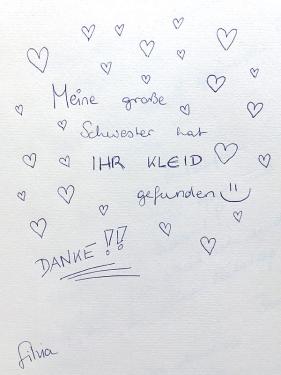 Meine große
Schwester hat
IHR KLEID ♡
gefunden =)
DANKE!!
Silvia